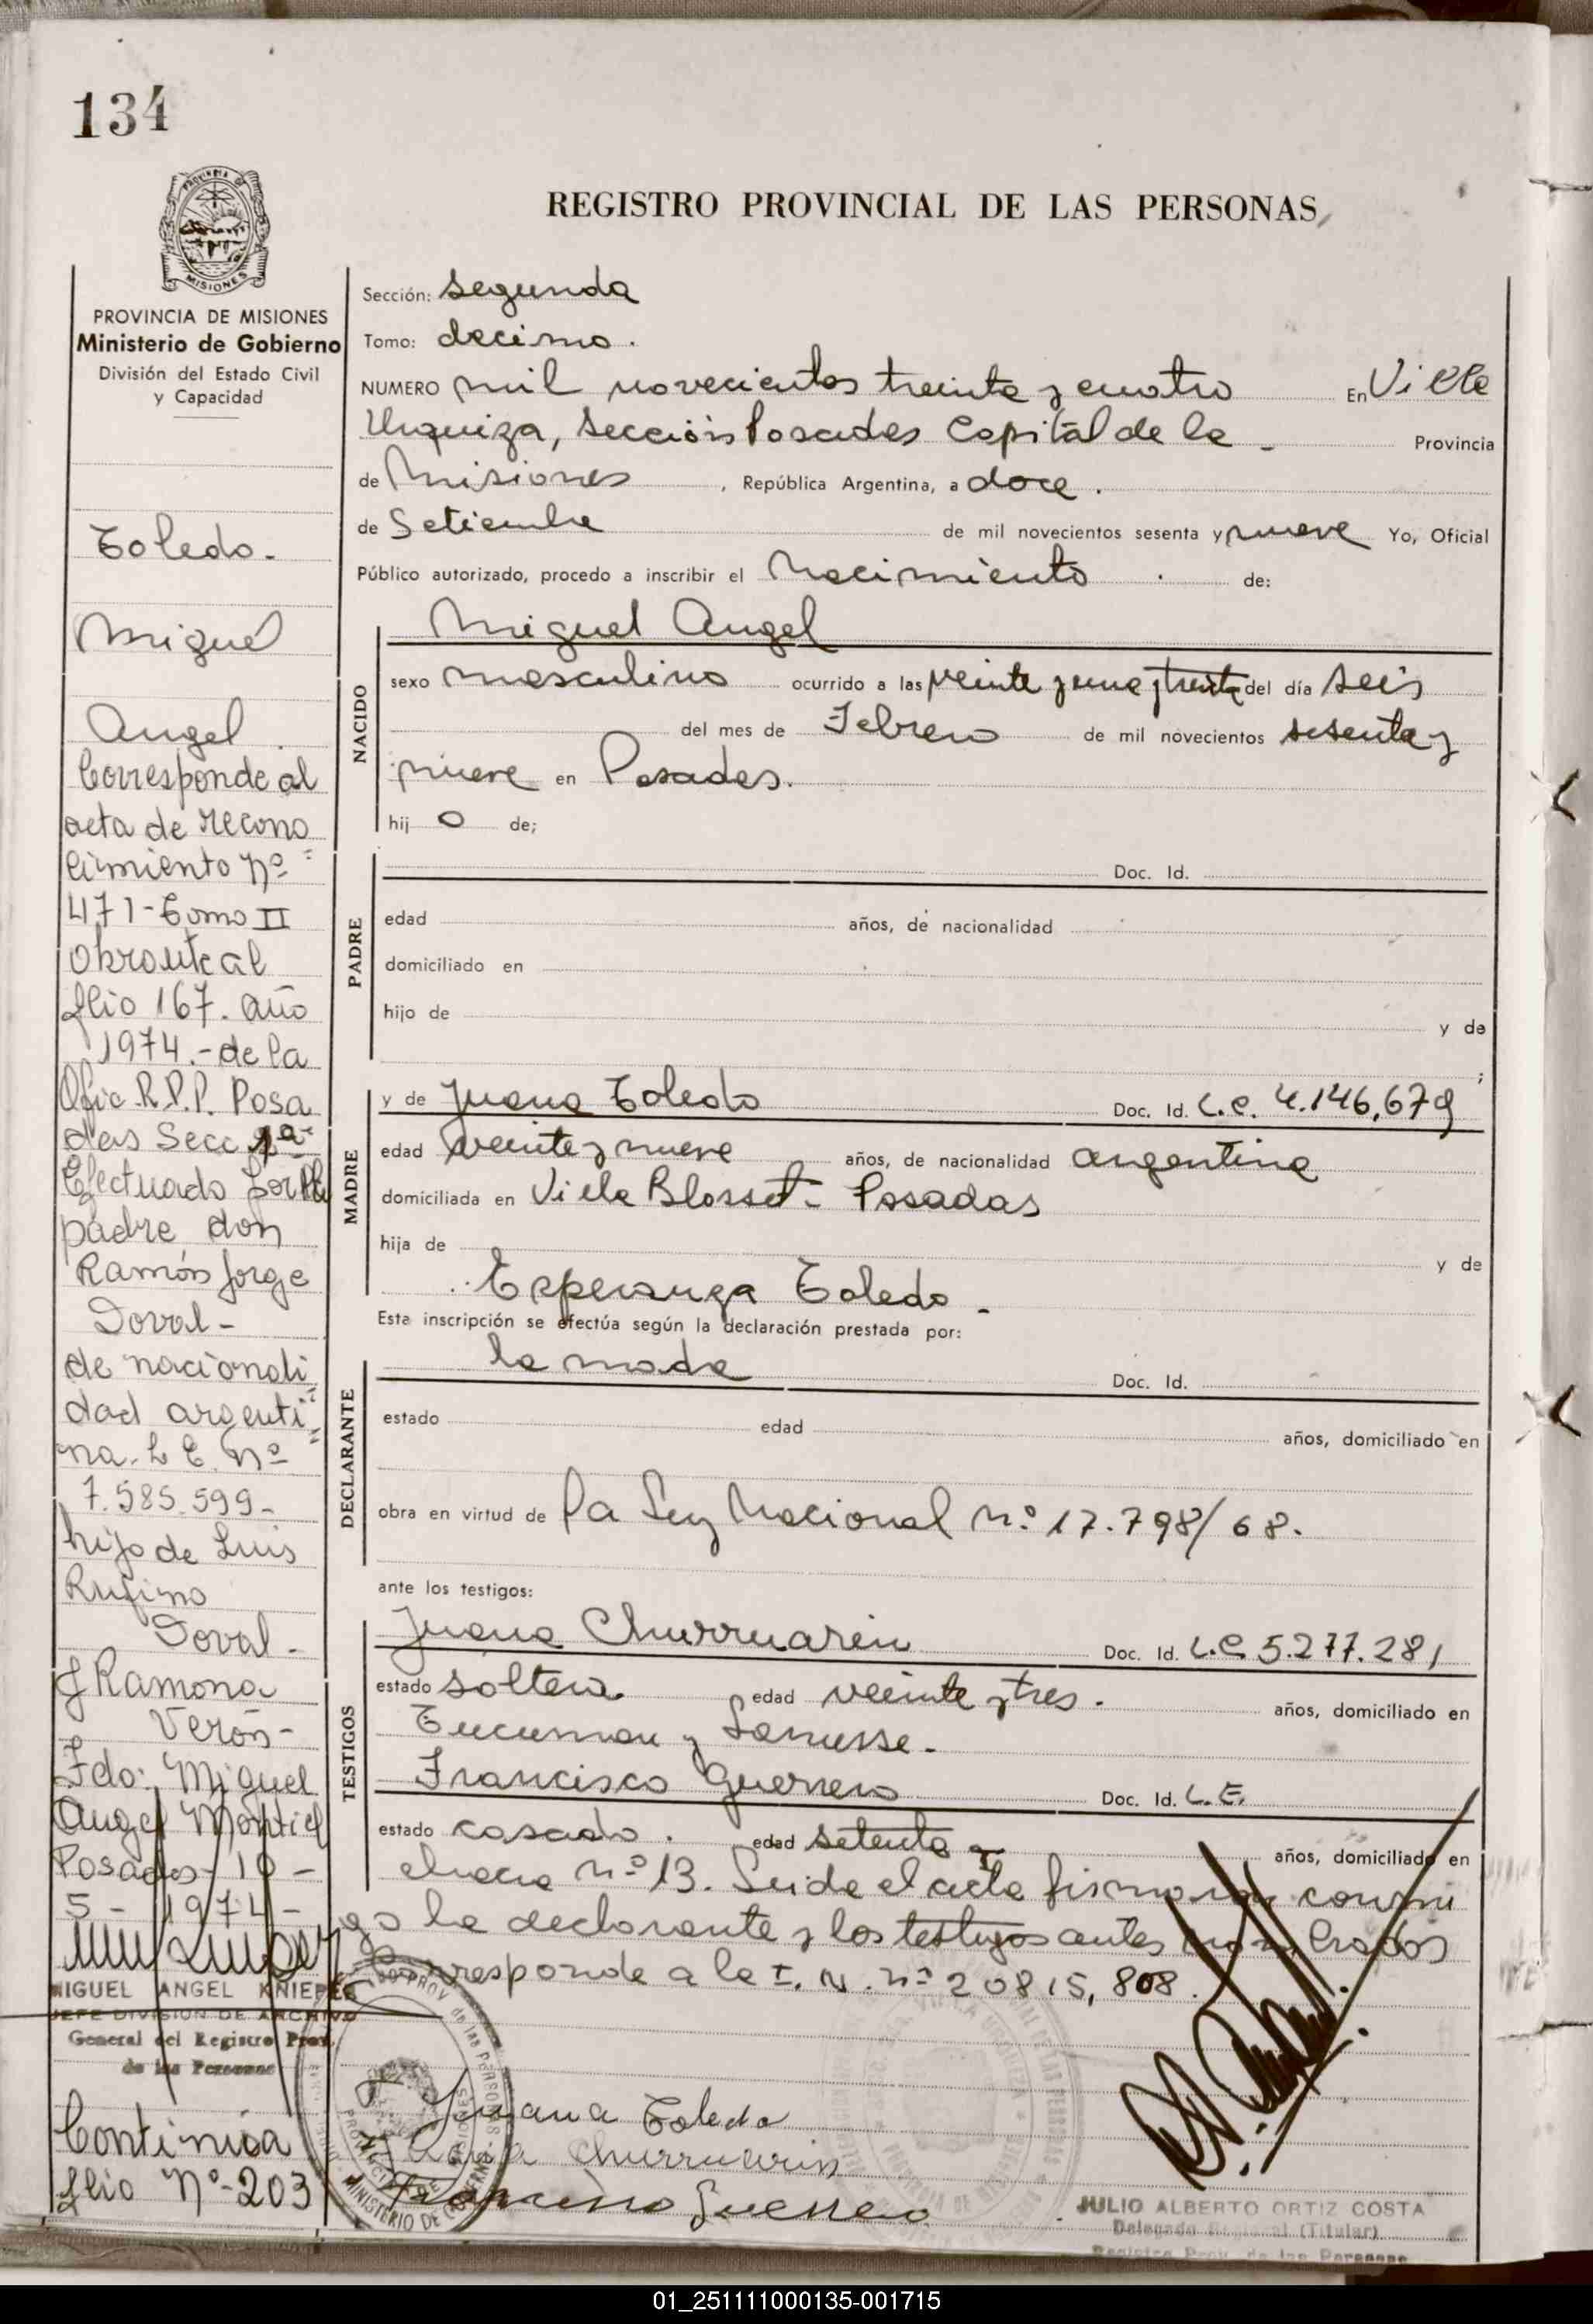 134
REGISTRO PROVINCIAL DE LAS PERSONAS
MISIONES
PROVINCIA DE MISIONES
Ministerio de Gobierno
División del Estado Civil
y Capacidad
Toledo.-
Miguel
Angel
Corresponde al
acta de recono
cimiento Nº
471 - Tomo II
obrante al
flio 167. año
1974.- de la
Ofic R.P.P. Posa
das Secc 1ª
Efectuado por el
padre don
Ramón Jorge
Doval -
de nacionali
dad argenti
na. L E. Nº
7.585.599 -
hijo de Luis
Rufino
Doval -
y Ramona
Verón -
Fdo: Miguel
Angel Montiel
Posadas - 10 -
5 - 1974 -
MIGUEL ANGEL KNIEPER
JEFE DIVISION DE ARCHIVO
General del Registro Prov.
de las Personas
Continúa
flio Nº - 203
Sección: segunda
Tomo: decimo.
NUMERO mil novecientos treinta y cuatro En Villa
Urquiza, Sección Posadas Capital de la - Provincia
de Misiones, República Argentina, a doce.
de Setiembre de mil novecientos sesenta y nueve Yo, Oficial
Público autorizado, procedo a inscribir el Nacimiento de:
NACIDO
Miguel Angel
sexo masculino ocurrido a las veinte y una y treinta del día seis
del mes de Febrero de mil novecientos sesenta y
nueve en Posadas.
hij o de;
PADRE
Doc. Id.
edad años, de nacionalidad
domiciliado en
hijo de y de
;
MADRE
y de Juana Toledo Doc. Id. L.C. 4.146,679
edad veinte y nueve años, de nacionalidad argentina
domiciliada en Villa Blosset - Posadas
hija de y de
Esperanza Toledo -
Esta inscripción se efectúa según la declaración prestada por:
DECLARANTE
la madre Doc. Id.
estado edad años, domiciliado en
obra en virtud de la Ley Nacional n.º 17.798/68.
ante los testigos:
TESTIGOS
Juana Churruarin Doc. Id. L.C 5.277.281
estado soltera edad veinte y tres. años, domiciliado en
Tucuman y Lanusse.
Francisco Guerrero Doc. Id. L.E.
estado casado. edad setenta años, domiciliado en
chacra nº 13. Leida el acta firman conmi
go la declarante y los testigos antes nombrados
Corresponde a la I. N. nº 20815,808.
Juana Toledo
Juana Churruarin
Francisco Guerrero
JULIO ALBERTO ORTIZ COSTA
Delegado Regional (Titular)
Registro Prov. de las Personas
01_251111000135-001715